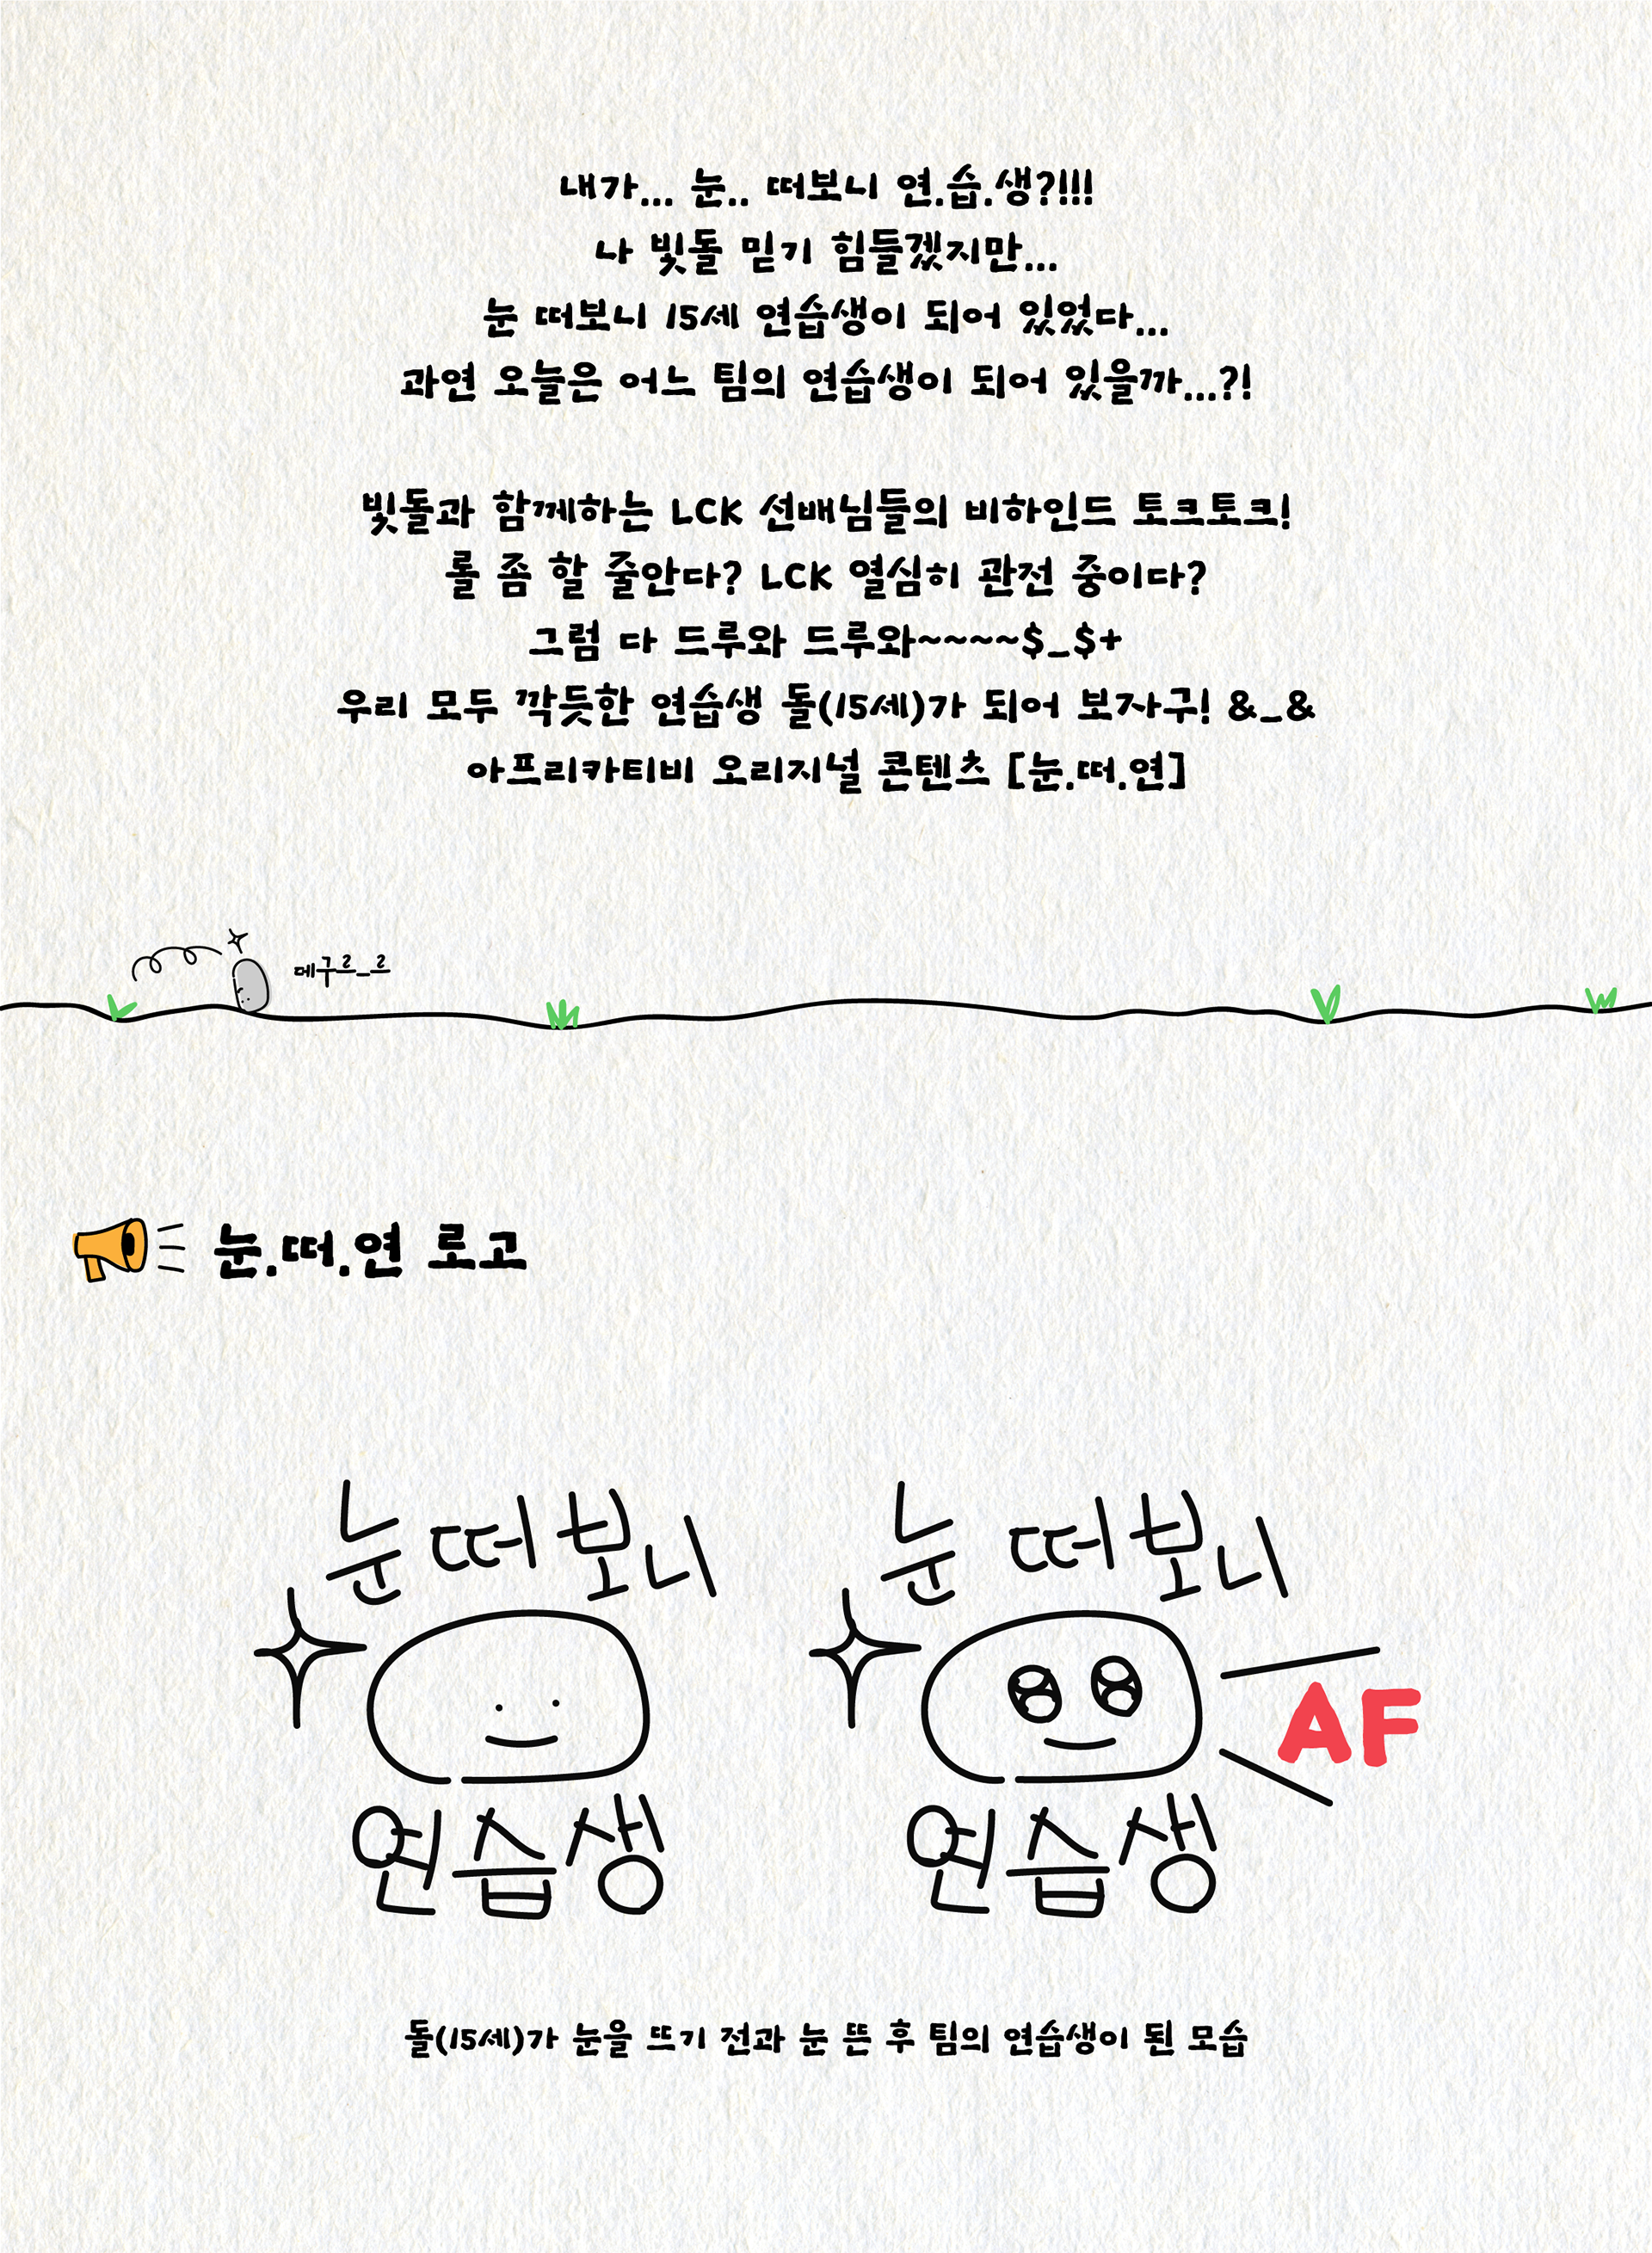 내가... 눈.. 떠보니 연.습.생?!!!
나 빛돌 믿기 힘들겠지만...
눈 떠보니 15세 연습생이 되어 있었다...
과연 오늘은 어느 팀의 연습생이 되어 있을까...?!
빛돌과 함께하는 LCK 선배님들의 비하인드 토크토크!
롤 좀 할 줄안다? LCK 열심히 관전 중이다?
그럼 다 드루와 드루와~~~~$_$+
우리 모두 깍듯한 연습생 돌(15세)가 되어 보자구! &_&
아프리카티비 오리지널 콘텐츠 [눈.떠.연]
데구르_르
눈.떠.연 로고
눈 떠보니
연습생
눈 떠보니
AF
연습생
돌(15세)가 눈을 뜨기 전과 눈 뜬 후 팀의 연습생이 된 모습